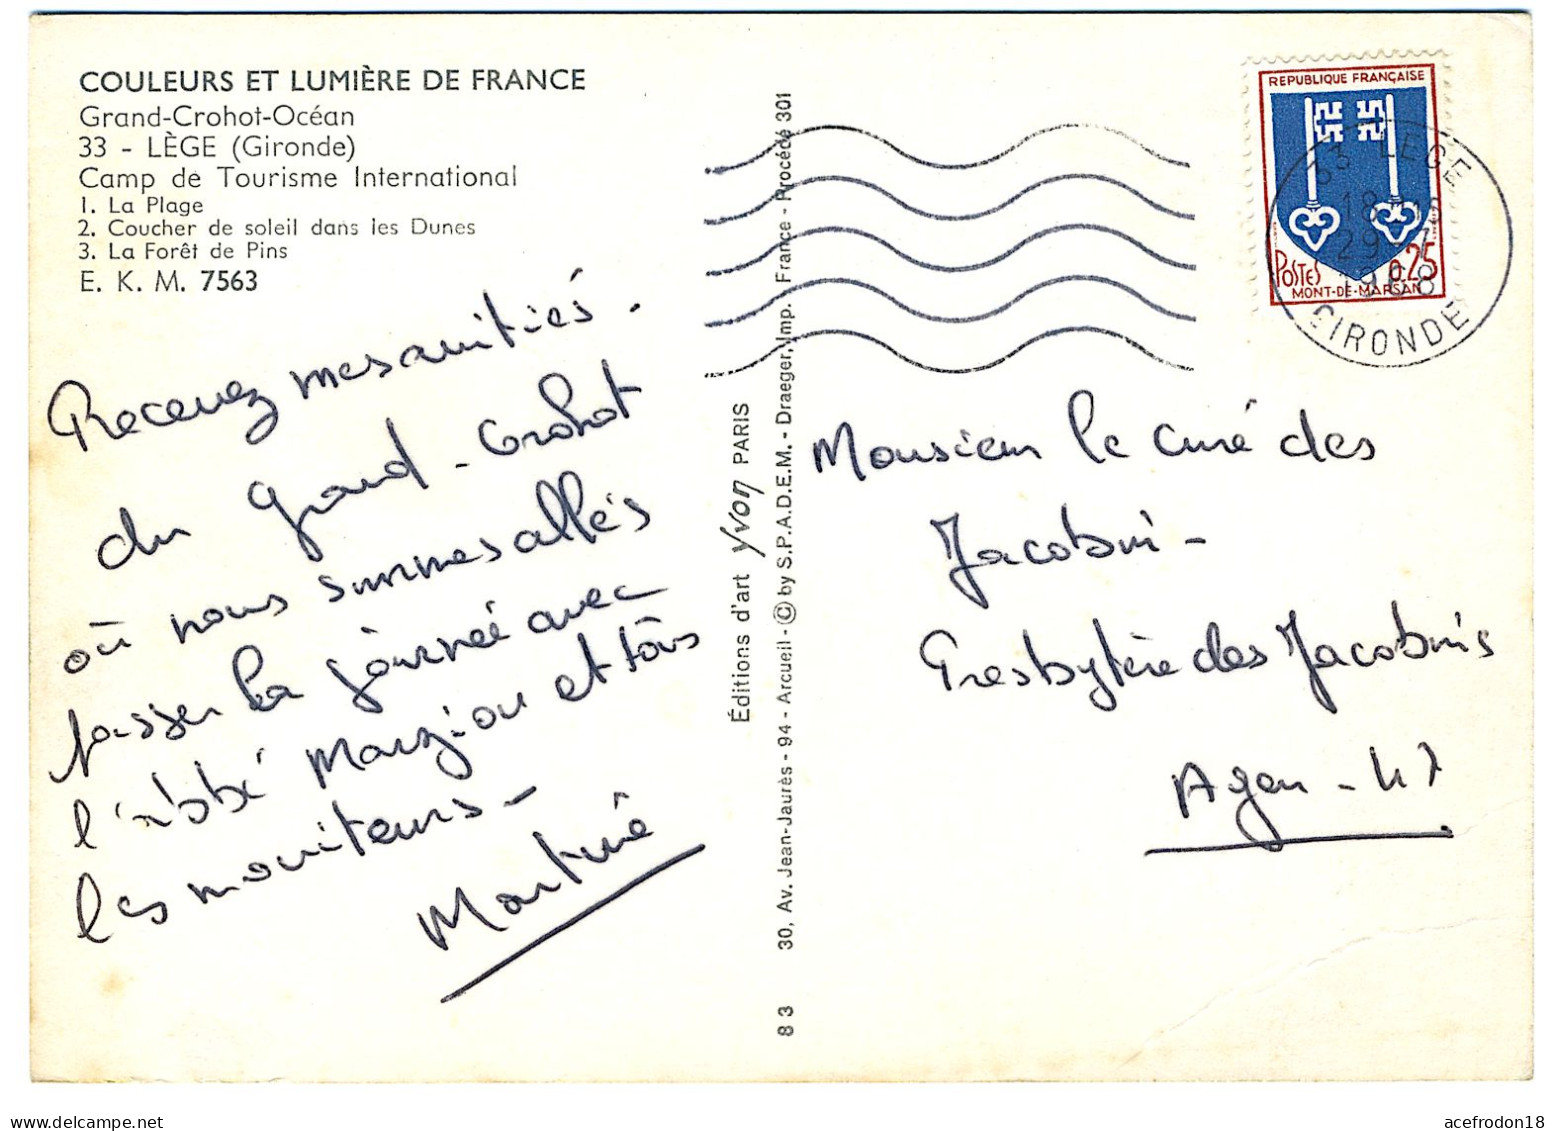 COULEURS ET LUMIÈRE DE FRANCE
Grand-Crohot-Océan
33 - LÈGE (Gironde)
Camp de Tourisme International
1. La Plage
2. Coucher de soleil dans les Dunes
3. La Forêt de Pins
E. K. M. 7563
Recevez mes amitiés.
du Grand-Crohot
où nous sommes allés
passer la journée avec
l'abbé Marziou et tous
les moniteurs -
Martine
Éditions d'art Yvon PARIS
83 30, Av. Jean-Jaurès - 94 - Arcueil - © by S.P.A.D.E.M. - Draeger, Imp. France - Procédé 301
REPUBLIQUE FRANÇAISE
POSTES 0.25
MONT-DE-MARSAN
33 LEGE
18
29-7
1968
GIRONDE
Monsieur le curé des
Jacobins -
Presbytère des Jacobins
Agen - 47
acefrodon18